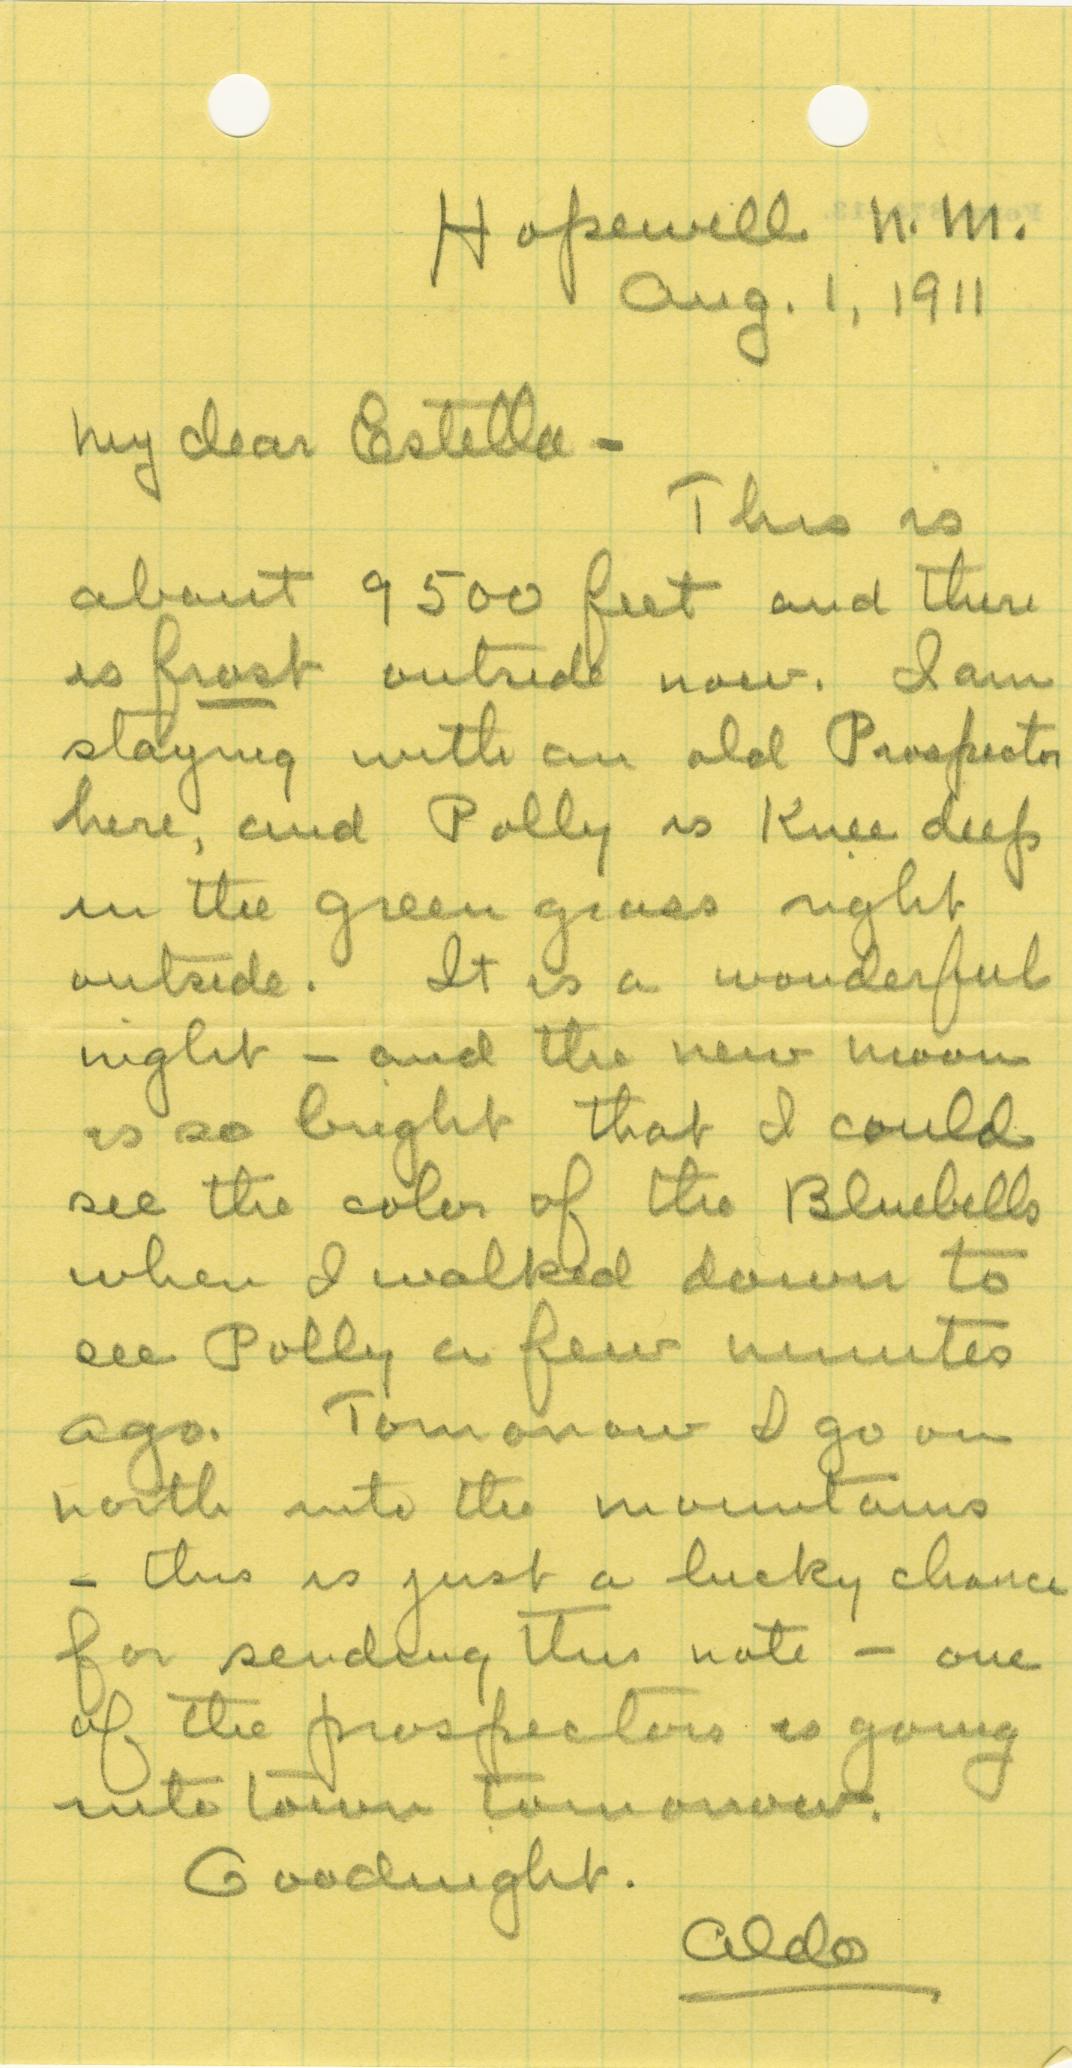 Hopewell N.M.
Aug. 1, 1911
My dear Estella -
This is
about 9500 feet and there
is frost outside now. I am
staying with an old Prospector
here, and Polly is Knee deep
in the green grass right
outside. It is a wonderful
night - and the new moon
is so bright that I could
see the color of the Bluebells
when I walked down to
see Polly a few minutes
ago. Tomorrow I go on
north into the mountains
- this is just a lucky chance
for sending this note - one
of the prospectors is going
into town tomorrow.
Goodnight.
Aldo